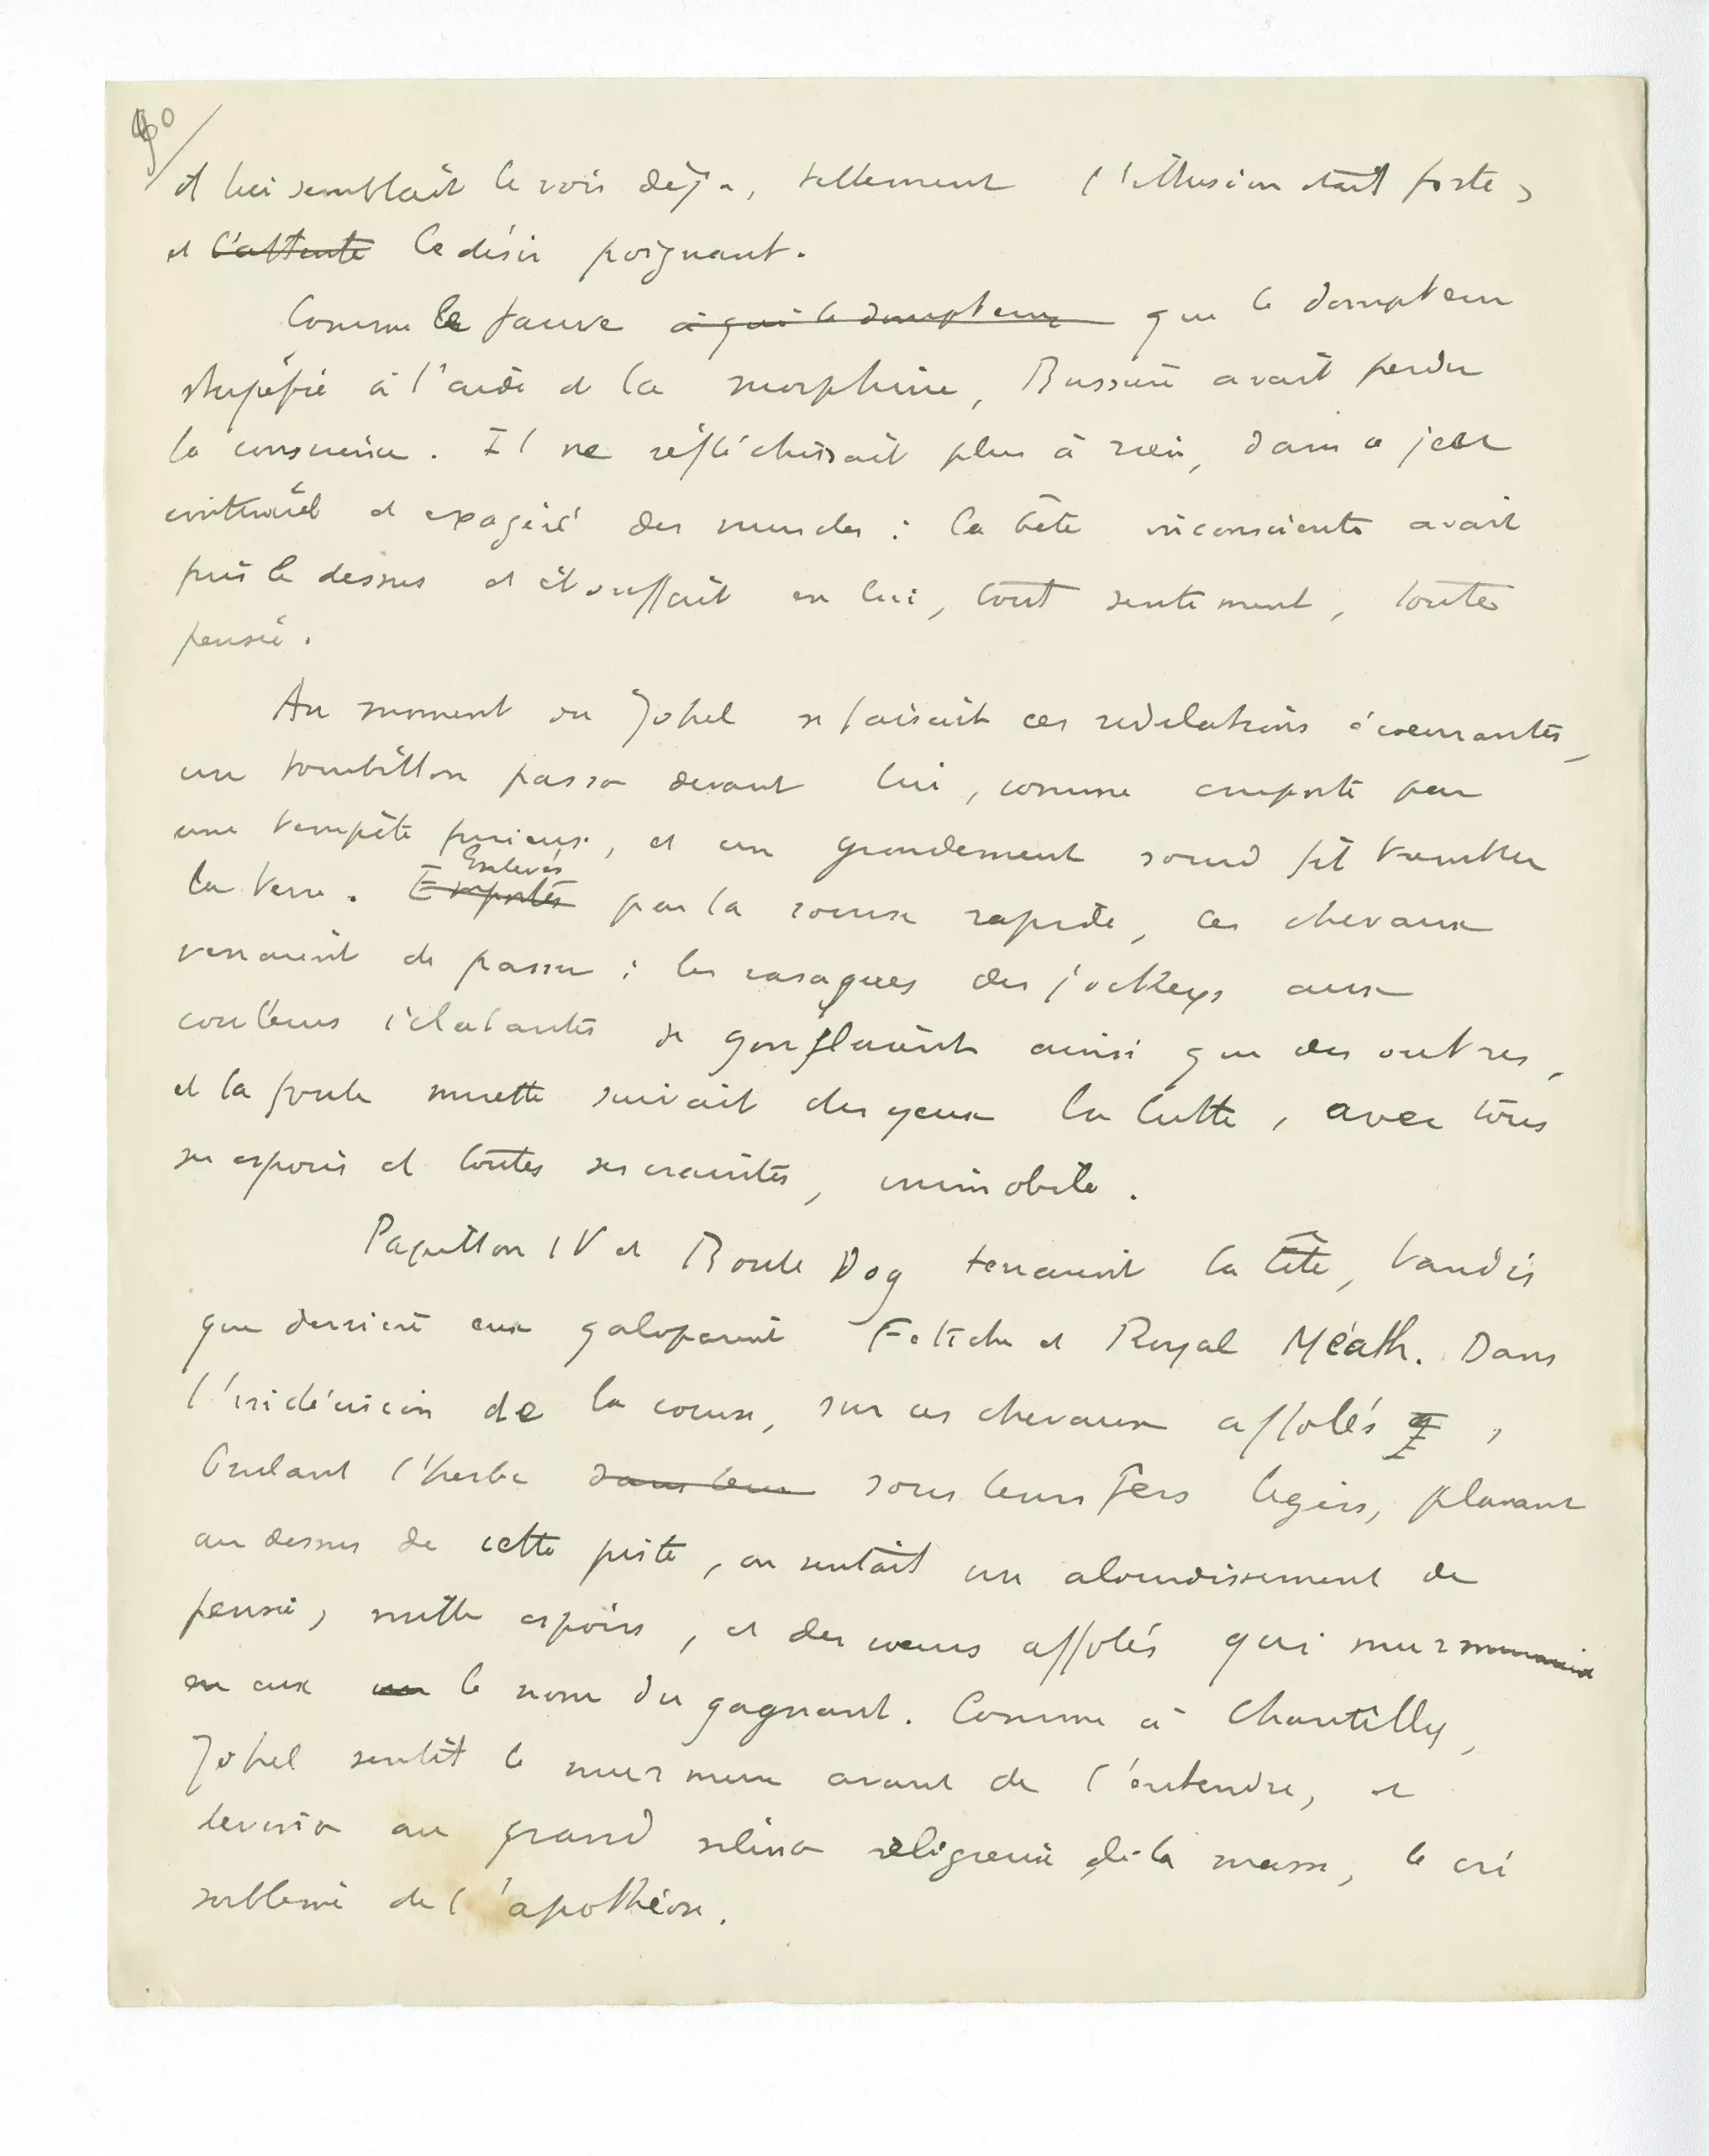 il lui semblait le voir déjà, tellement l'illusion était forte,
et l'attente le désir poignant.
Comme le fauve à qui le dompteur que le dompteur
stupéfie à l'aide de la morphine, Bussière avait perdu
la conscience. Il ne réfléchissait plus à rien, dans ce jeu
continuel et exagéré des muscles : la bête inconsciente avait
pris le dessus et étouffait en lui, tout sentiment, toute
pensée.
Au moment où Johel se faisait ces révélations écœurantes,
un tourbillon passa devant lui, comme emporté par
une tempête furieuse, et un grondement sourd fit trembler
Enlevés
la terre. Emportés par la course rapide, les chevaux
venaient de passer : les casaques des jockeys aux
couleurs éclatantes se gonflaient ainsi que des outres,
et la foule muette suivait des yeux la lutte, avec tous
ses espoirs et toutes ses craintes, immobile.
Papillon IV et Boule Dog tenaient la tête, tandis
que derrière eux galopaient Fétiche et Royal Méath. Dans
l'indécision de la course, sur ces chevaux affolés,
brûlant l'herbe dans leur sous leurs fers légers, planant
au dessus de cette piste, on sentait un alourdissement de
pensée, mille espoirs, et des cœurs affolés qui murmuraient
en eux le nom du gagnant. Comme à Chantilly,
Johel sentit le murmure avant de l'entendre, et
au grand silence religieux de la masse, le cri
sublime de l'apothéose.